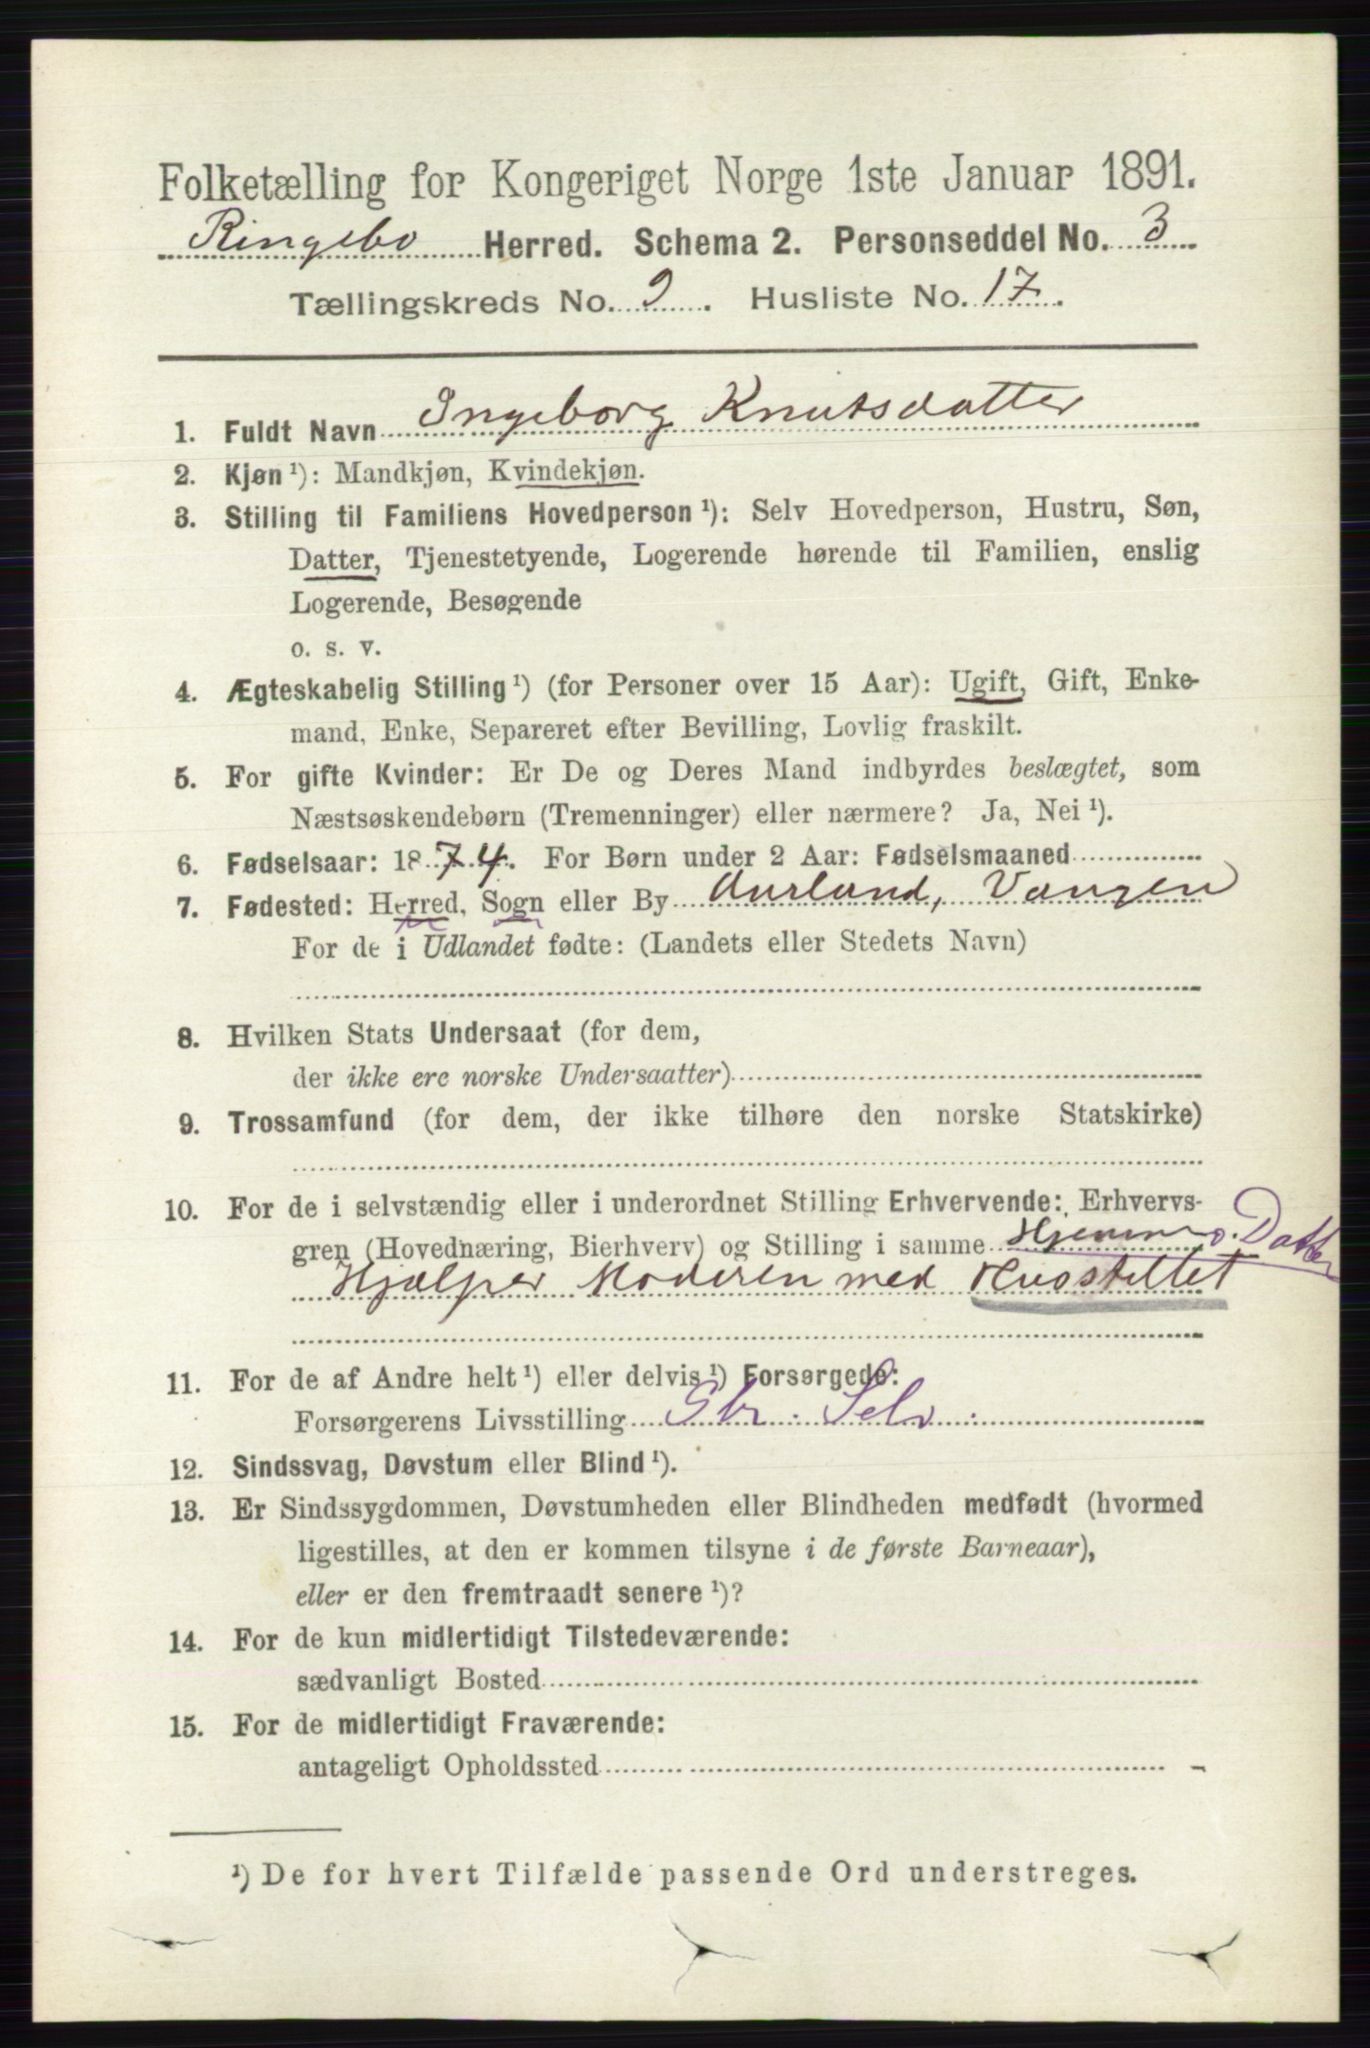 Folketælling for Kongeriget Norge 1ste Januar 1891.
Ringebo Herred. Schema 2. Personseddel No. 3
Tællingskreds No. 9. Husliste No. 17.
1. Fuldt Navn Ingeborg Knutsdatter
2. Kjøn ¹): Mandkjøn, Kvindekjøn.
3. Stilling til Familiens Hovedperson ¹): Selv Hovedperson, Hustru, Søn,
Datter, Tjenestetyende, Logerende hørende til Familien, enslig
Logerende, Besøgende
o. s. v.
4. Ægteskabelig Stilling ¹) (for Personer over 15 Aar): Ugift, Gift, Enke-
mand, Enke, Separeret efter Bevilling, Lovlig fraskilt.
5. For gifte Kvinder: Er De og Deres Mand indbyrdes beslægtet, som
Næstsøskendebørn (Tremenninger) eller nærmere? Ja, Nei ¹).
6. Fødselsaar: 1874. For Børn under 2 Aar: Fødselsmaaned
7. Fødested: Herred, Sogn eller By Aurland, Vangen
For de i Udlandet fødte: (Landets eller Stedets Navn)
8. Hvilken Stats Undersaat (for dem,
der ikke ere norske Undersaatter)
9. Trossamfund (for dem, der ikke tilhøre den norske Statskirke)
10. For de i selvstændig eller i underordnet Stilling Erhvervende: Erhvervs-
gren (Hovednæring, Bierhverv) og Stilling i samme Hjemmev. Datter
Hjælper Moderen med Husstellet
11. For de af Andre helt ¹) eller delvis ¹) Forsørgede:
Forsørgerens Livsstilling Gbr. Selv.
12. Sindssvag, Døvstum eller Blind ¹).
13. Er Sindssygdommen, Døvstumheden eller Blindheden medfødt (hvormed
ligestilles, at den er kommen tilsyne i de første Barneaar),
eller er den fremtraadt senere ¹)?
14. For de kun midlertidigt Tilstedeværende:
sædvanligt Bosted
15. For de midlertidigt Fraværende:
antageligt Opholdssted
¹) De for hvert Tilfælde passende Ord understreges.